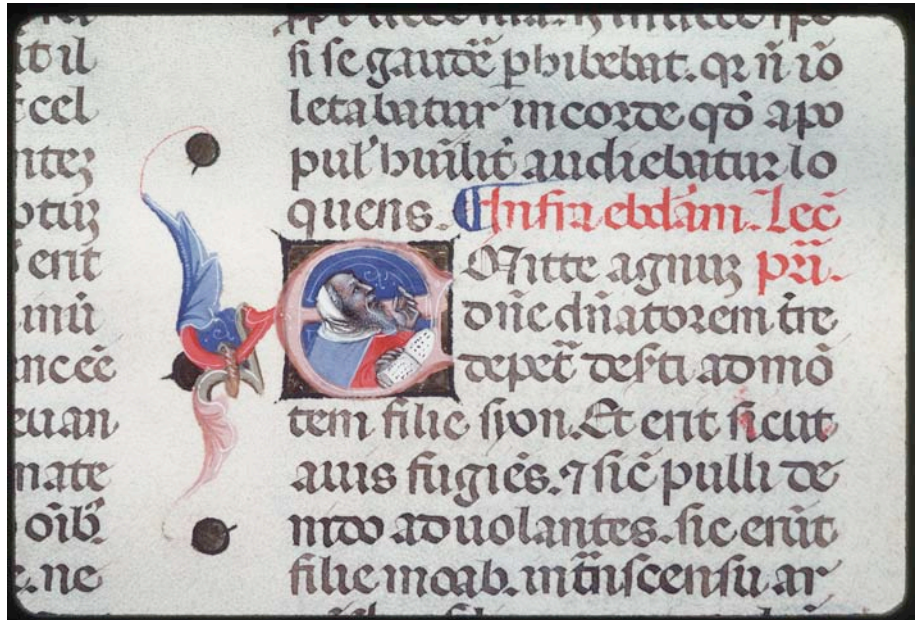 cel
ntez
otuz
erit
mū
nceē
euan
mate
oib9.
e. ne
si se gaudē ꝑhibebat. qꝛ n̄ iō
letabatur in corde qđ apo
pul' huīlit̄ audiebatur lo
quens. ¶ Infra ebdam̄. Lec̄
EMitte agnuz pri.
dn̄e dn̄atorem t̄re
de pet̄ des̄ti ad mō
tem filie syon. Et erit sicut
auis fugiēs. ⁊ sic̄ pulli de
nido aduolantes. sic erūt
filie moab. in trāscensu ar